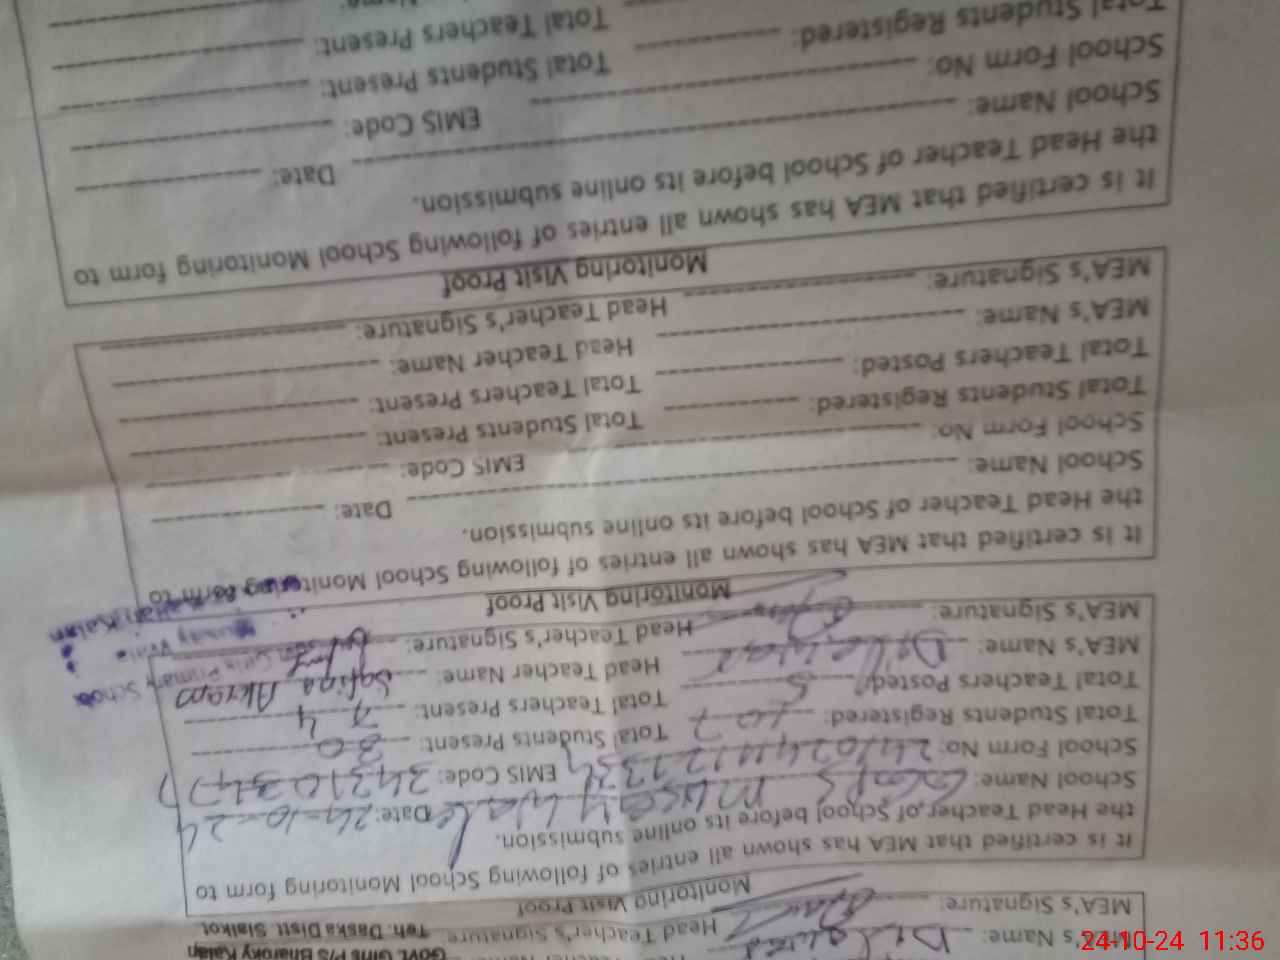 Govt. Girls P/S Bharoky Kalan
MEA's Name: Dilawar
Teh. Daska Distt. Sialkot.
MEA's Signature: Head Teacher's Signature:
Monitoring Visit Proof
It is certified that MEA has shown all entries of following School Monitoring form to
the Head Teacher of School before its online submission.
School Name: GGPS Musay Wala Date: 24-10-24
School Form No: EMIS Code:
Total Students Registered: 107 Total Students Present: 80
Total Teachers Posted: 5 Total Teachers Present: 4
MEA's Name: Dilawar Head Teacher Name: Safina Akram
Primary School
MEA's Signature: Head Teacher's Signature:
Kalan
Monitoring Visit Proof
It is certified that MEA has shown all entries of following School Monitoring form to
the Head Teacher of School before its online submission.
School Name: Date:
School Form No: EMIS Code:
Total Students Registered: Total Students Present:
Total Teachers Posted: Total Teachers Present:
MEA's Name: Head Teacher Name:
MEA's Signature: Head Teacher's Signature:
Monitoring Visit Proof
It is certified that MEA has shown all entries of following School Monitoring form to
the Head Teacher of School before its online submission.
School Name: Date:
School Form No: EMIS Code:
Total Students Registered: Total Students Present:
Total Teachers Present:
24-10-24 11:36